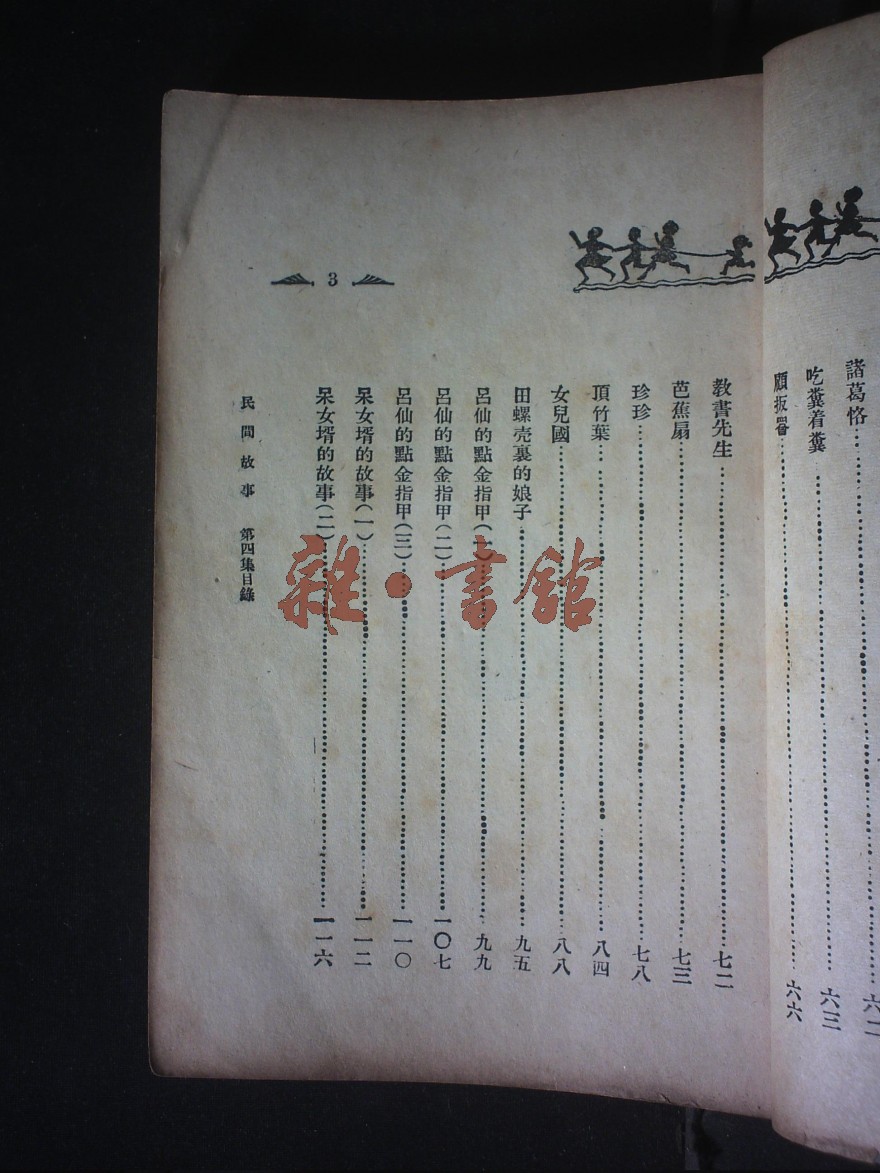 諸葛恪……六二
吃糞着糞……六三
顧扳罾……六六
3
教書先生……七二
芭蕉扇……七三
珍珍……七八
頂竹葉……八四
女兒國……八八
田螺壳裏的娘子……九五
呂仙的點金指甲(一)……九九
呂仙的點金指甲(二)……一〇七
呂仙的點金指甲(三)……一一〇
呆女壻的故事(一)……一一二
呆女壻的故事(二)……一一六
民間故事 第四集目錄
雜·書館